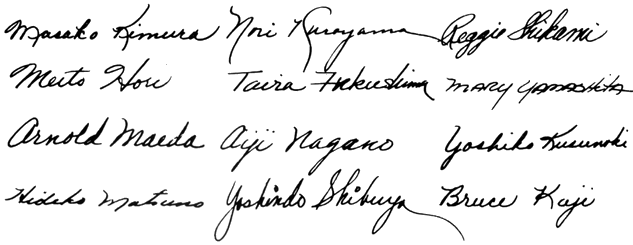 Masako Kimura Nori Kuroyama Reggie Shikami
Meito Hori Taira Fukushima MARY YAMASHITA
Arnold Maeda Aiji Nagano Yoshiko Kusunoki
Hideko Matsuno Yoshindo Shibuya Bruce Kaji